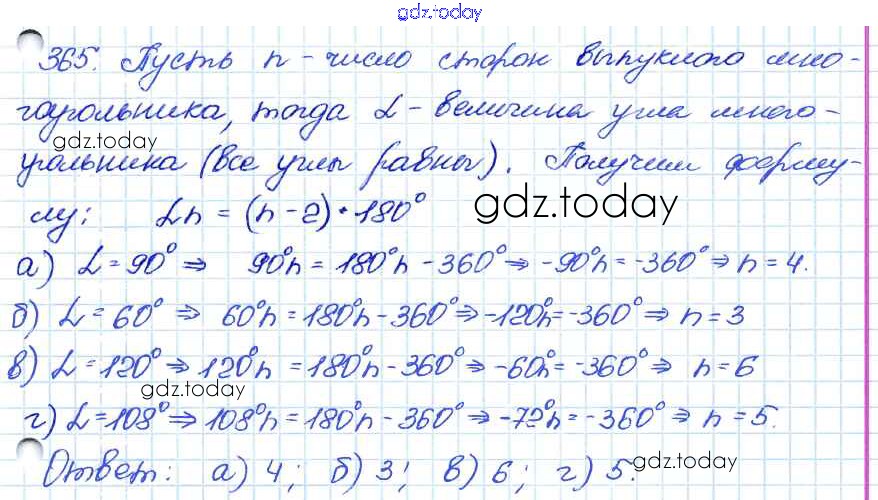 gdz.today
365. Пусть n - число сторон выпуклого мно-
гоугольника, тогда α - величина угла много-
gdz.today
угольника (все углы равны). Получим форму-
лу: αn = (n-2)·180° gdz.today
а) α=90° ⇒ 90°n = 180°n - 360° ⇒ -90°n = -360° ⇒ n = 4.
б) α=60° ⇒ 60°n = 180°n - 360° ⇒ -120°n = -360° ⇒ n = 3
в) α=120° ⇒ 120°n = 180°n - 360° ⇒ -60°n = -360° ⇒ n = 6
gdz.today
г) α=108° ⇒ 108°n = 180°n - 360° ⇒ -72°n = -360° ⇒ n = 5.
Ответ: а) 4; б) 3; в) 6; г) 5. gdz.today